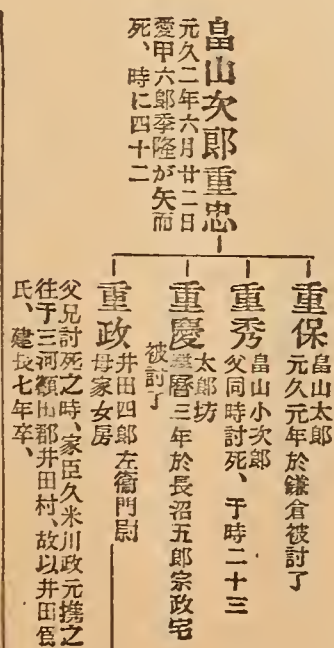 畠山次郎重忠
元久二年六月廿二日
愛甲六郎季隆が矢而
死、時に四十二
重保
畠山太郎
元久元年於鎌倉被討了
重秀
畠山小次郎
父同時討死、于時二十三
重慶
太郎坊
暦三年於長沼五郎宗政宅
被討了
重政
井田四郎左衞門尉
母家女房
父兄討死之時、家臣久米川政元携之
往于三河額田郡井田村、故以井田爲
氏、建長七年卒、